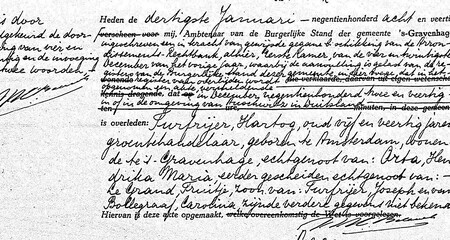 is door
gekeurd de door-
ing van vier en
tig en de invoeging
twee woorden.
Heden de dertigste Januari – negentienhonderd acht en veertig
verscheen voor mij, Ambtenaar van de Burgerlijke Stand der gemeente 's-Gravenhage
ingeschreven en in kracht van gewijsde gegane beschikking van de Arron
dissements-Rechtbank, alhier, Eerste Kamer, van de vier en twintigste
December van het vorig jaar, waarbij de aanvulling is gelast van de re
gisters van de Burgerlijke Stand der gemeente in dier voege, dat in
opgenomen een akte, vermeldende
dat op in December negentienhonderd twee en veertig
in of in de omgeving van Auschwitz in Duitsland minuten, in deze gemeente
is overleden: Turfrijer, Hartog, oud vijf en veertig jaren
groentehandelaar, geboren te Amsterdam, wonen
de te 's-Gravenhage, echtgenoot van: Orta, Hen
drika Maria, eerder gescheiden echtgenoot van: –
Le Grand, Fruitje, zoon van: Turfrijer, Joseph en van
Bollegraaf, Carolina, zijnde verdere gegevens niet bekend
Hiervan is deze akte opgemaakt, welke overeenkomstig de Wet is voorgelezen.